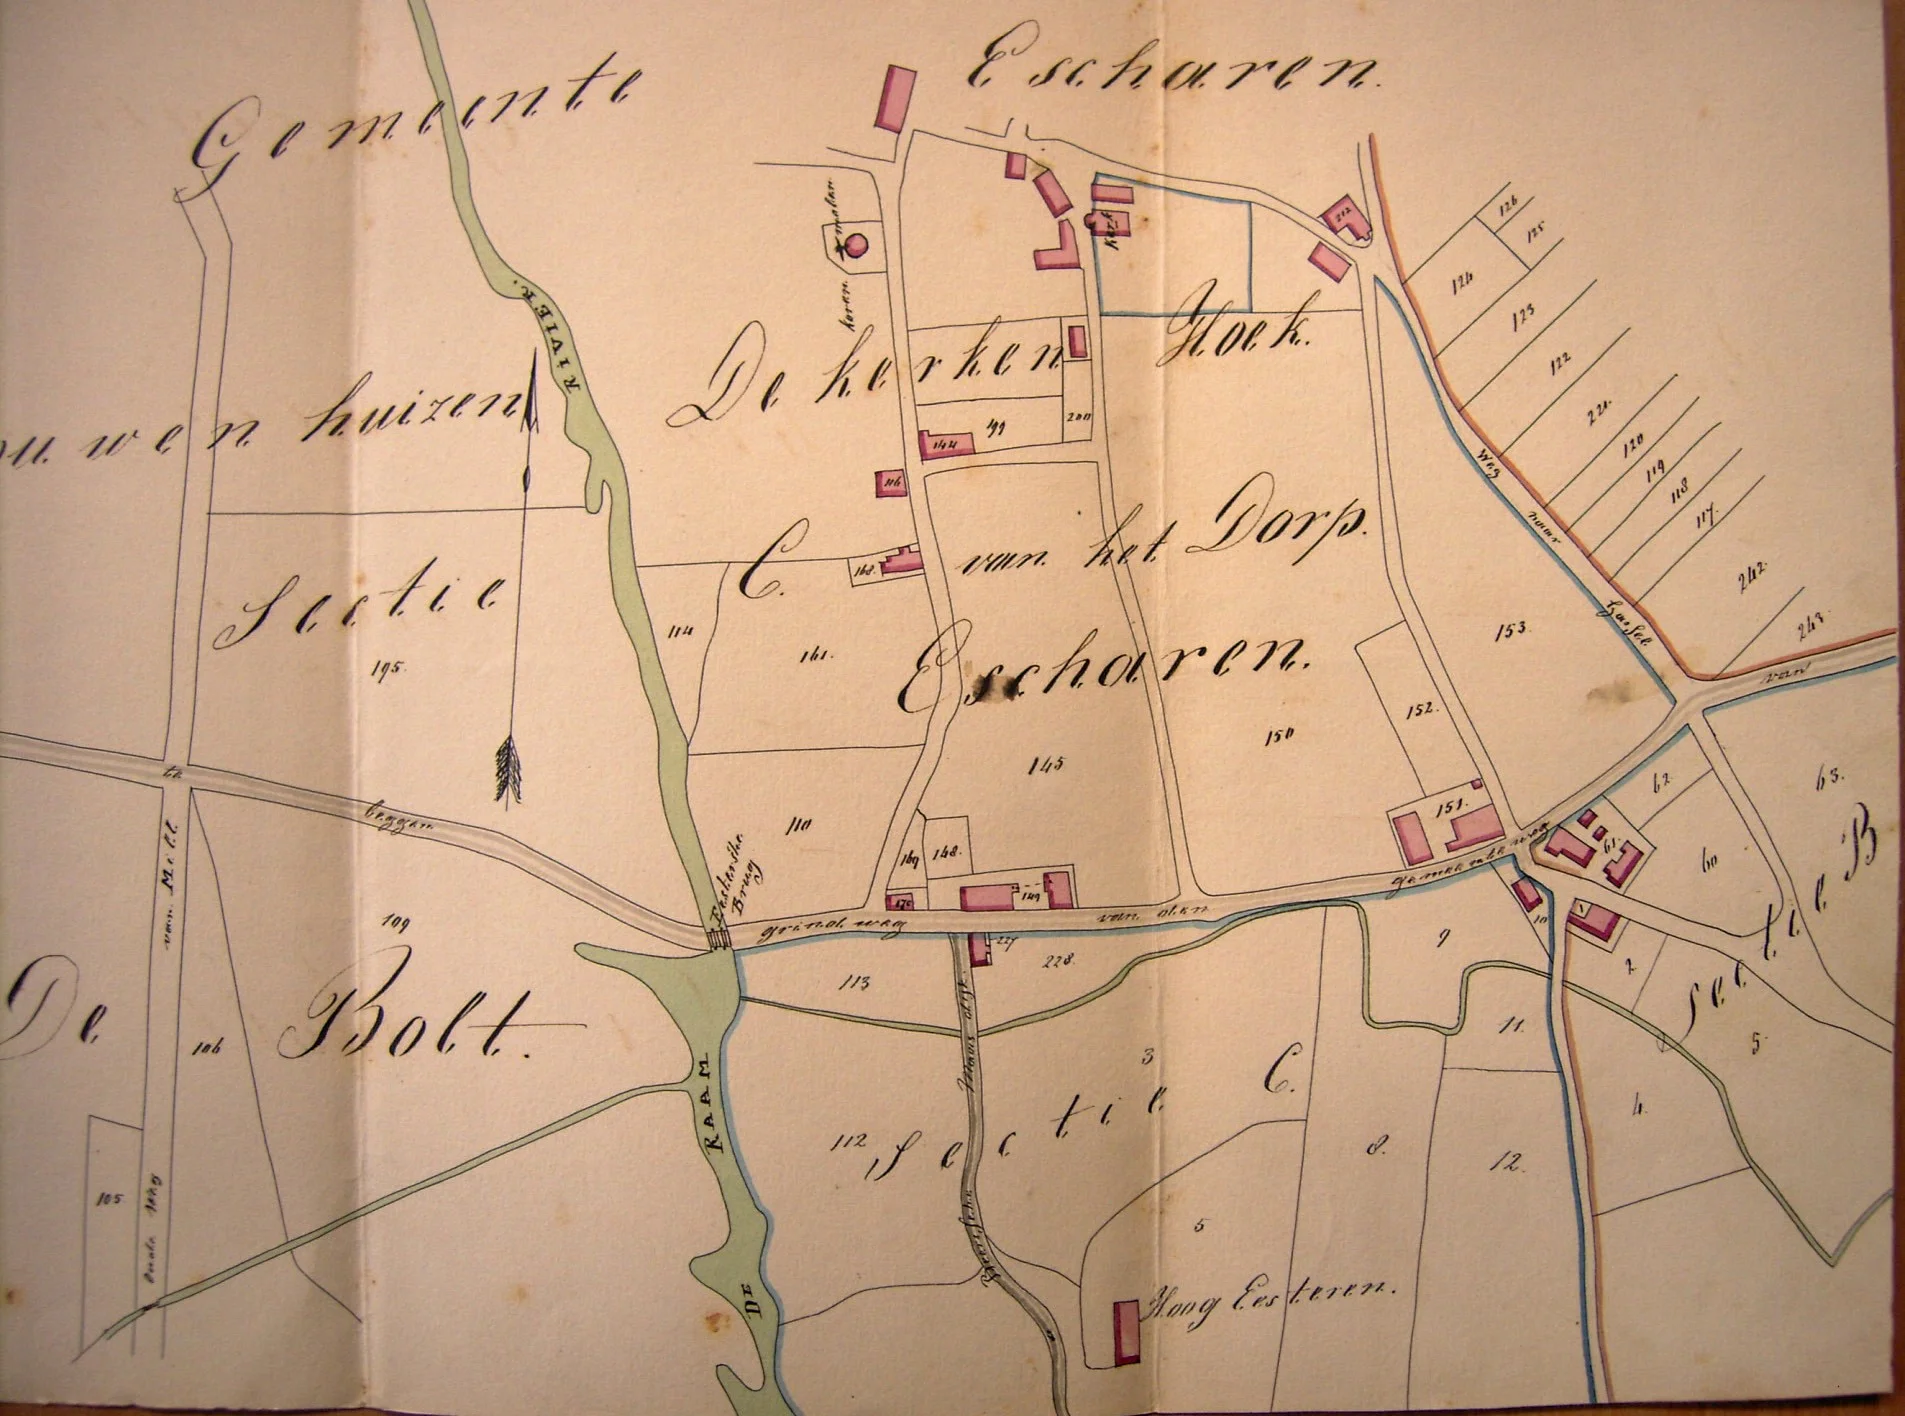 Gemeente
Escharen.
126
125
124
123
122
221.
120
119
118
117.
242.
243.
212
koren
molen
Kerk
RIVIER.
De kerken Hoek.
huizen
144
199
200
116
C.
van het Dorp.
168.
Weg
naar
Sectie
195.
114
161.
Escharen.
153.
152.
150
145
110
te
van
62
63.
151.
61
60
B
van Mill
Brug
169
148.
170
149
grind weg
van den
227
228.
113
10
1
9
2
Sectie
De
Bolt.
109
106
105
RAAM
11.
5
3
C.
Sectie
112
4.
8.
12.
5
Hoog Eesteren.
DE